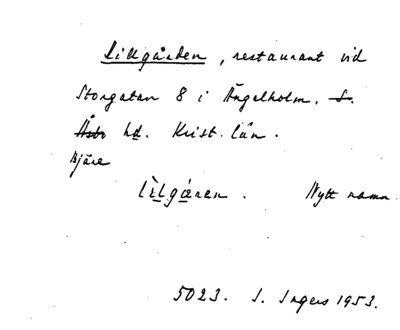 Lillgården, restaurant vid
Storgatan 8 i Ängelholm. S.
Åsbo hd. Krist. län.
Bjäre
lìlgá̊ren. Nytt namn.
5023. I. Ingers 1953.